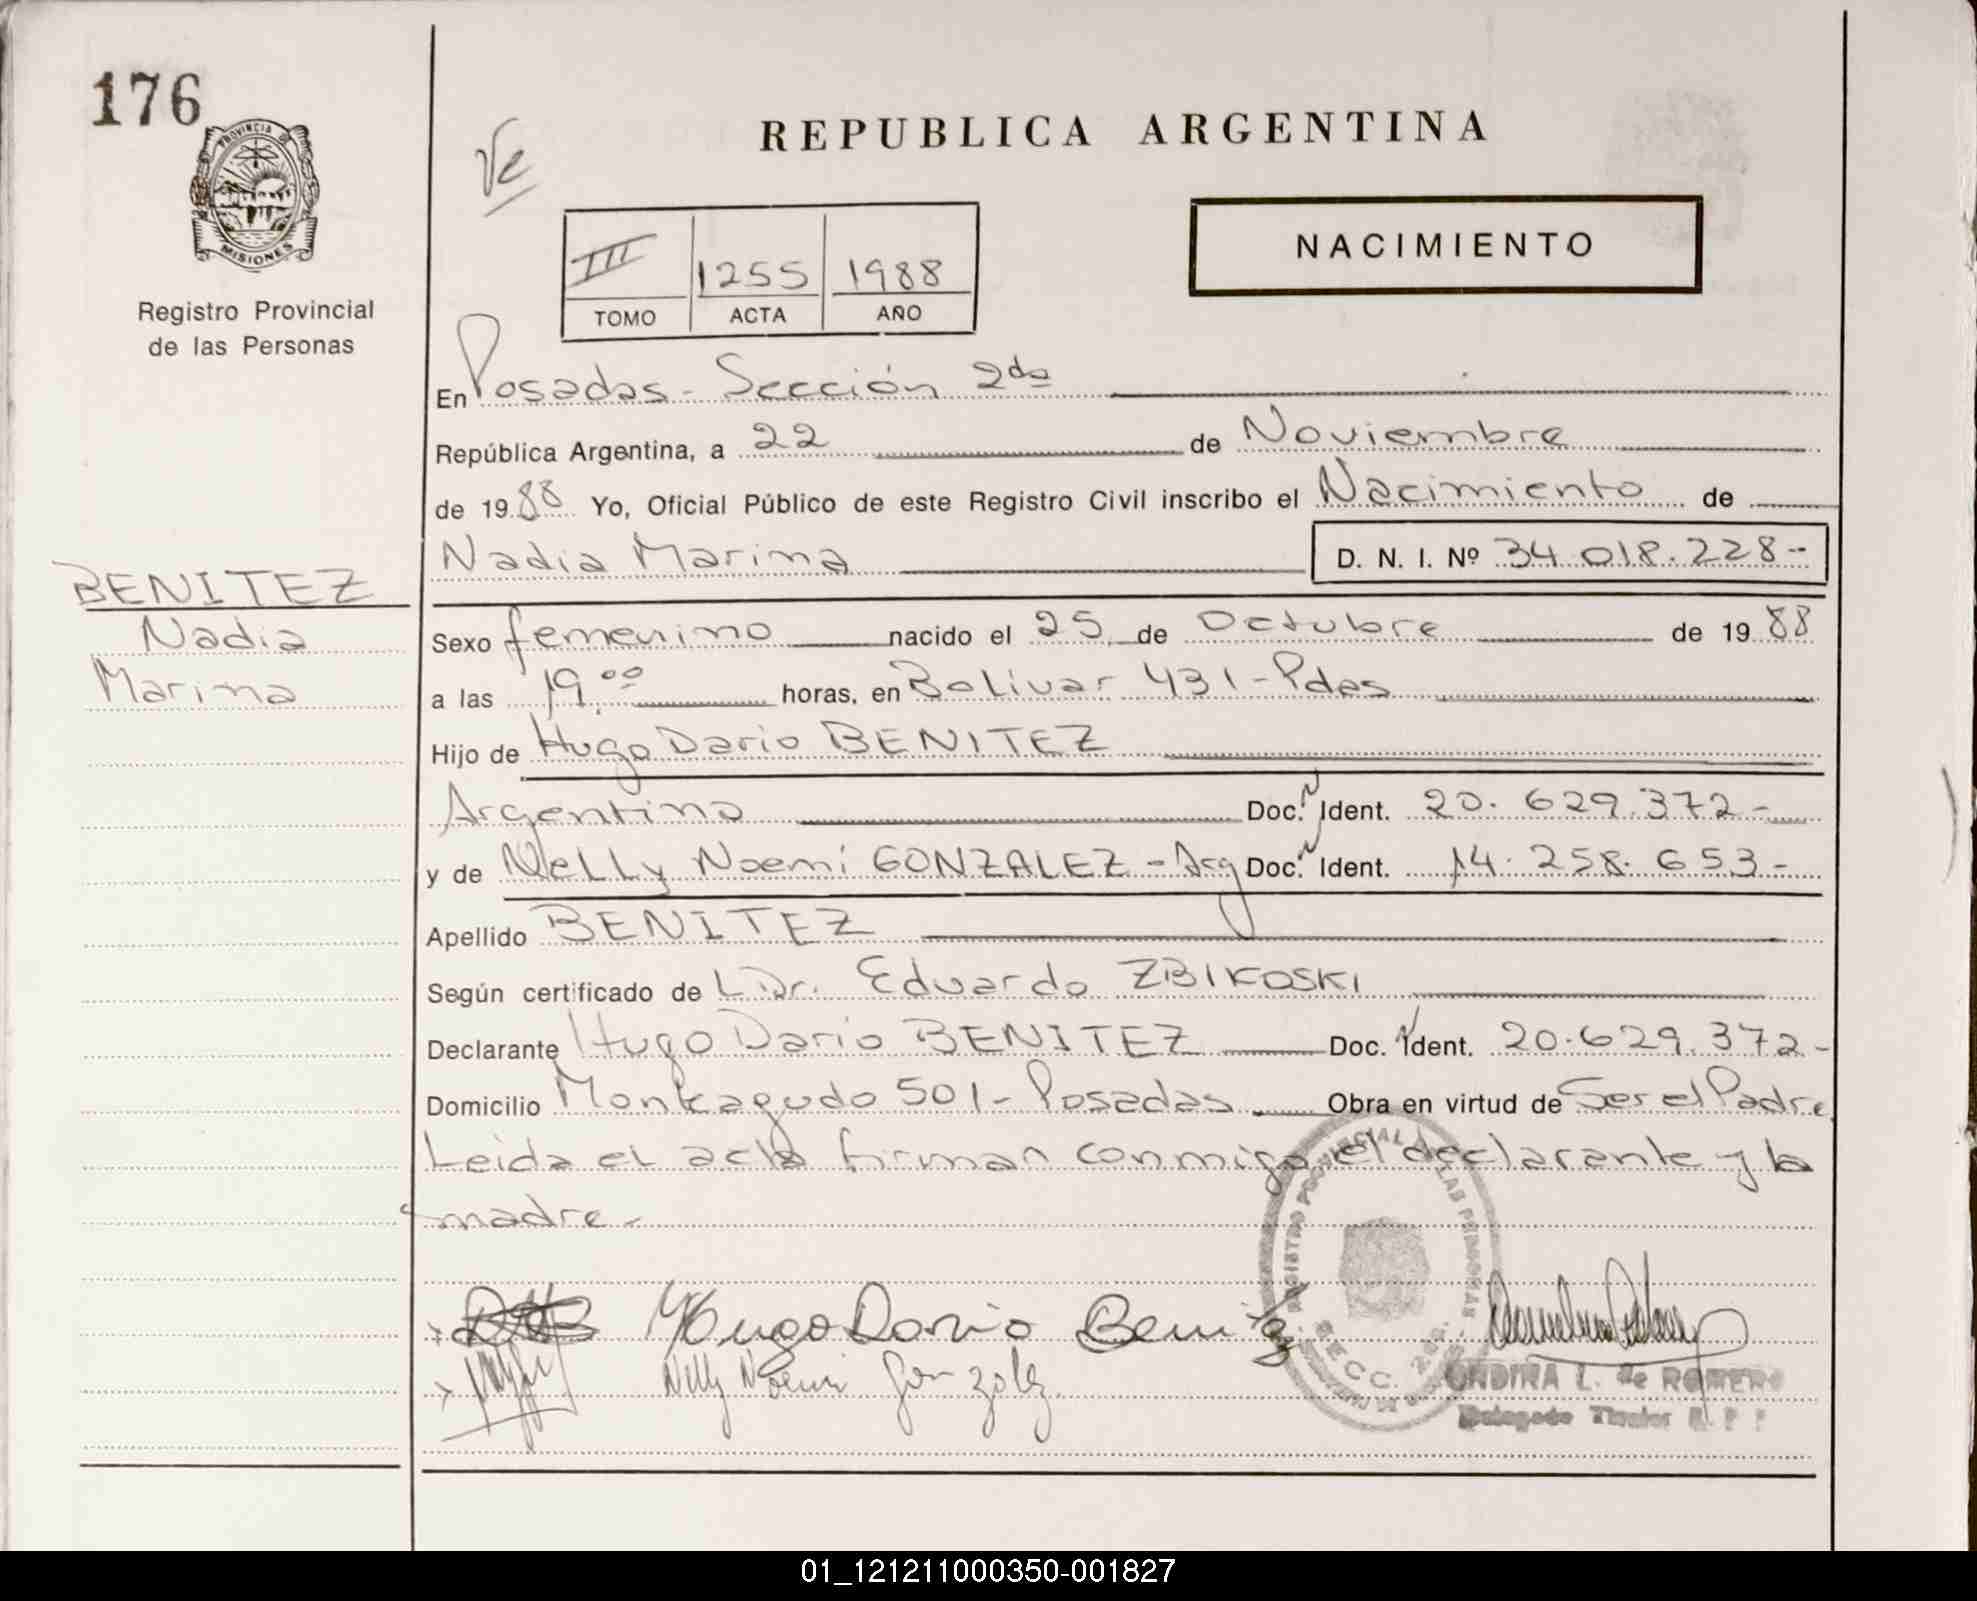 176
PROVINCIA DE
MISIONES
Registro Provincial
de las Personas
REPUBLICA ARGENTINA
NACIMIENTO
III 1255 1988
TOMO ACTA AÑO
En Posadas - Sección 2da
República Argentina, a 22 de Noviembre
de 1988 Yo, Oficial Público de este Registro Civil inscribo el Nacimiento de
Nadia Marina D. N. I. Nº 34.018.228-
BENITEZ
Nadia
Marina
Sexo femenino nacido el 25 de Octubre de 1988
a las 19.00 horas, en Bolivar 431 - Pdas
Hijo de Hugo Dario BENITEZ
Argentino Doc. Ident. 20.629.372-
y de Nelly Noemí GONZALEZ - Arg Doc. Ident. 14.258.653-
Apellido BENITEZ
Según certificado de Dr. Eduardo ZBIKOSKI
Declarante Hugo Dario BENITEZ Doc. Ident. 20.629.372-
Domicilio Monteagudo 501 - Posadas Obra en virtud de Ser el Padre
Leida el acta firman conmigo el declarante y la
madre -
Hugo Dario Benitez
Nelly Noemi Gonzalez
REGISTRO PROVINCIAL DE LAS PERSONAS
SECC. 2da.
ONDINA L. de ROMERO
Delegado Titular R. P. P.
01_121211000350-001827